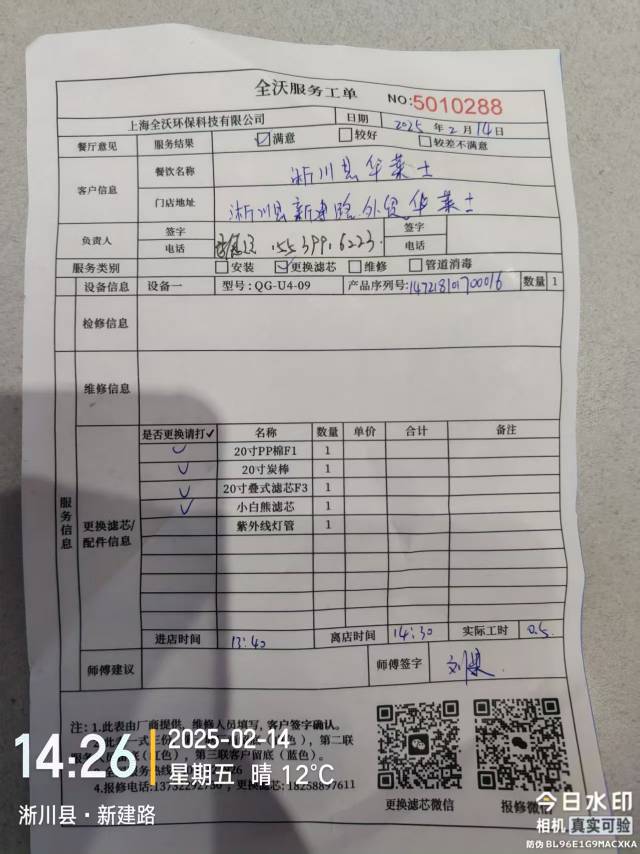 全沃服务工单
NO:5010288
上海全沃环保科技有限公司 日期 2025 年 2 月 14 日
餐厅意见 服务结果 ☑满意 □较好 □较差不满意
客户信息 餐饮名称 淅川县华莱士
门店地址 淅川县新建路 华莱士
负责人 签字 签字
电话 15539916223 电话
服务类别 □安装 ☑更换滤芯 □维修 □管道消毒
设备信息 设备一 型号:QG-U4-09 产品序列号:147218101700016 数量 1
检修信息
维修信息
服务信息
更换滤芯/配件信息
是否更换请打✓ 名称 数量 单价 合计 备注
✓ 20寸PP棉F1 1
✓ 20寸炭棒 1
✓ 20寸叠式滤芯F3 1
✓ 小白熊滤芯 1
紫外线灯管 1
进店时间 13:40 离店时间 14:30 实际工时 0.5
师傅建议 师傅签字
注:1.此表由厂商提供,维修人员填写,客户签字确认。
一式三份 ,第二联
(红色),第三联客户留底(蓝色)。
4.报修电话:13732292750 ,更换滤芯:18258897611
更换滤芯微信 报修微信
14:26 2025-02-14
星期五 晴 12°C
淅川县·新建路
今日水印
相机 真实可验
防伪 BL96E1G9MACXKA